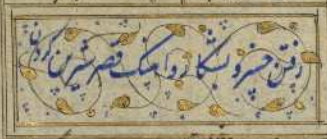 رفتن خسرو بشکار و آهنگ قصر شیرین کردن